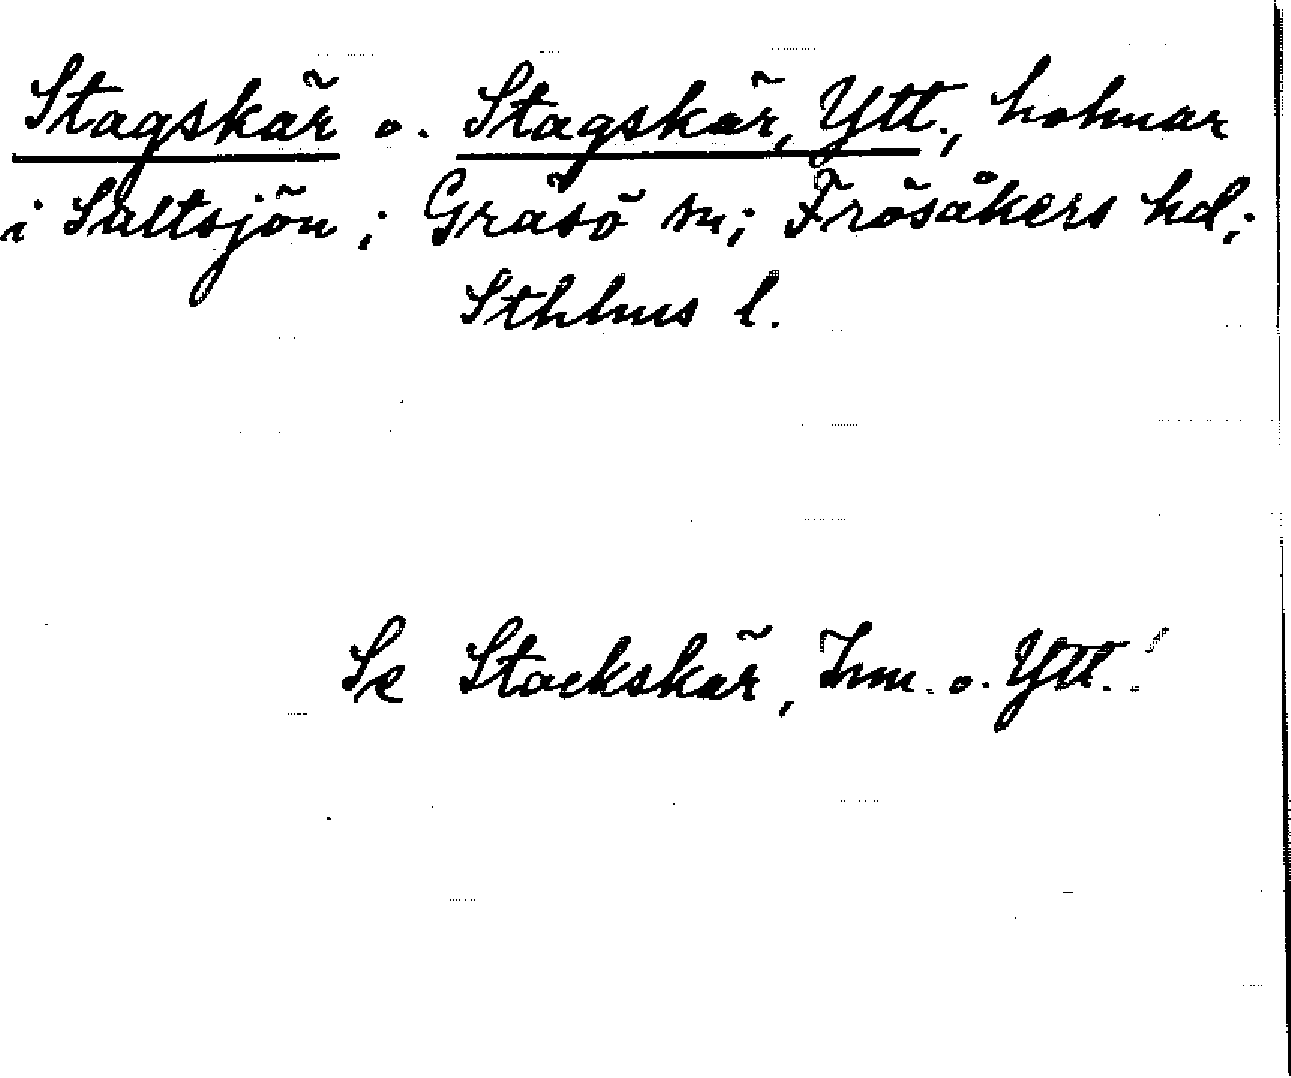 Stagskär o. Stagskär, Ytt., holmar
i Saltsjön; Gräsö sn; Frösåkers hd;
Sthlms l.
Se Stackskär, Inn. o. Ytt.!